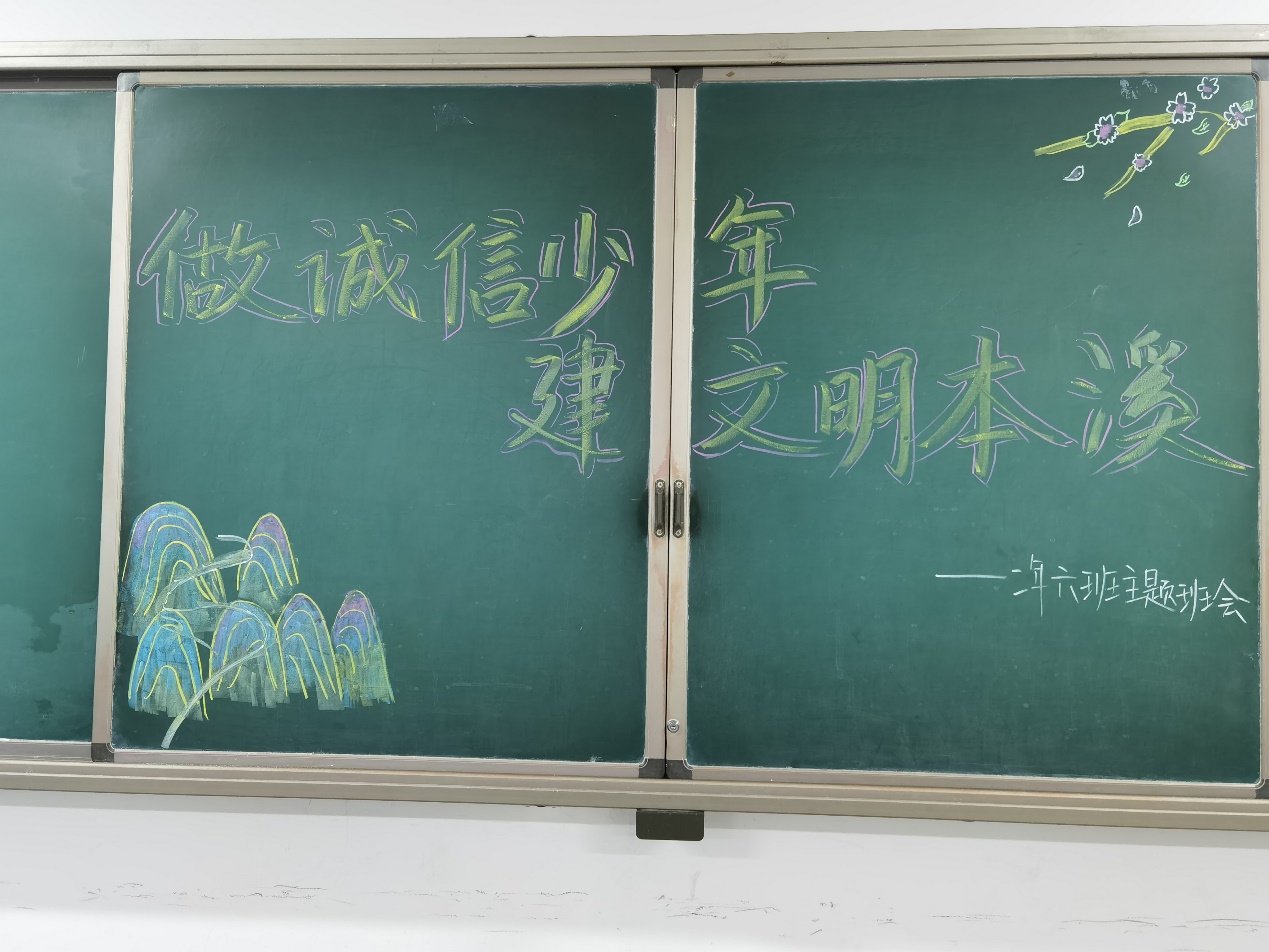 做诚信少年
建文明本溪
——二年六班主题班会